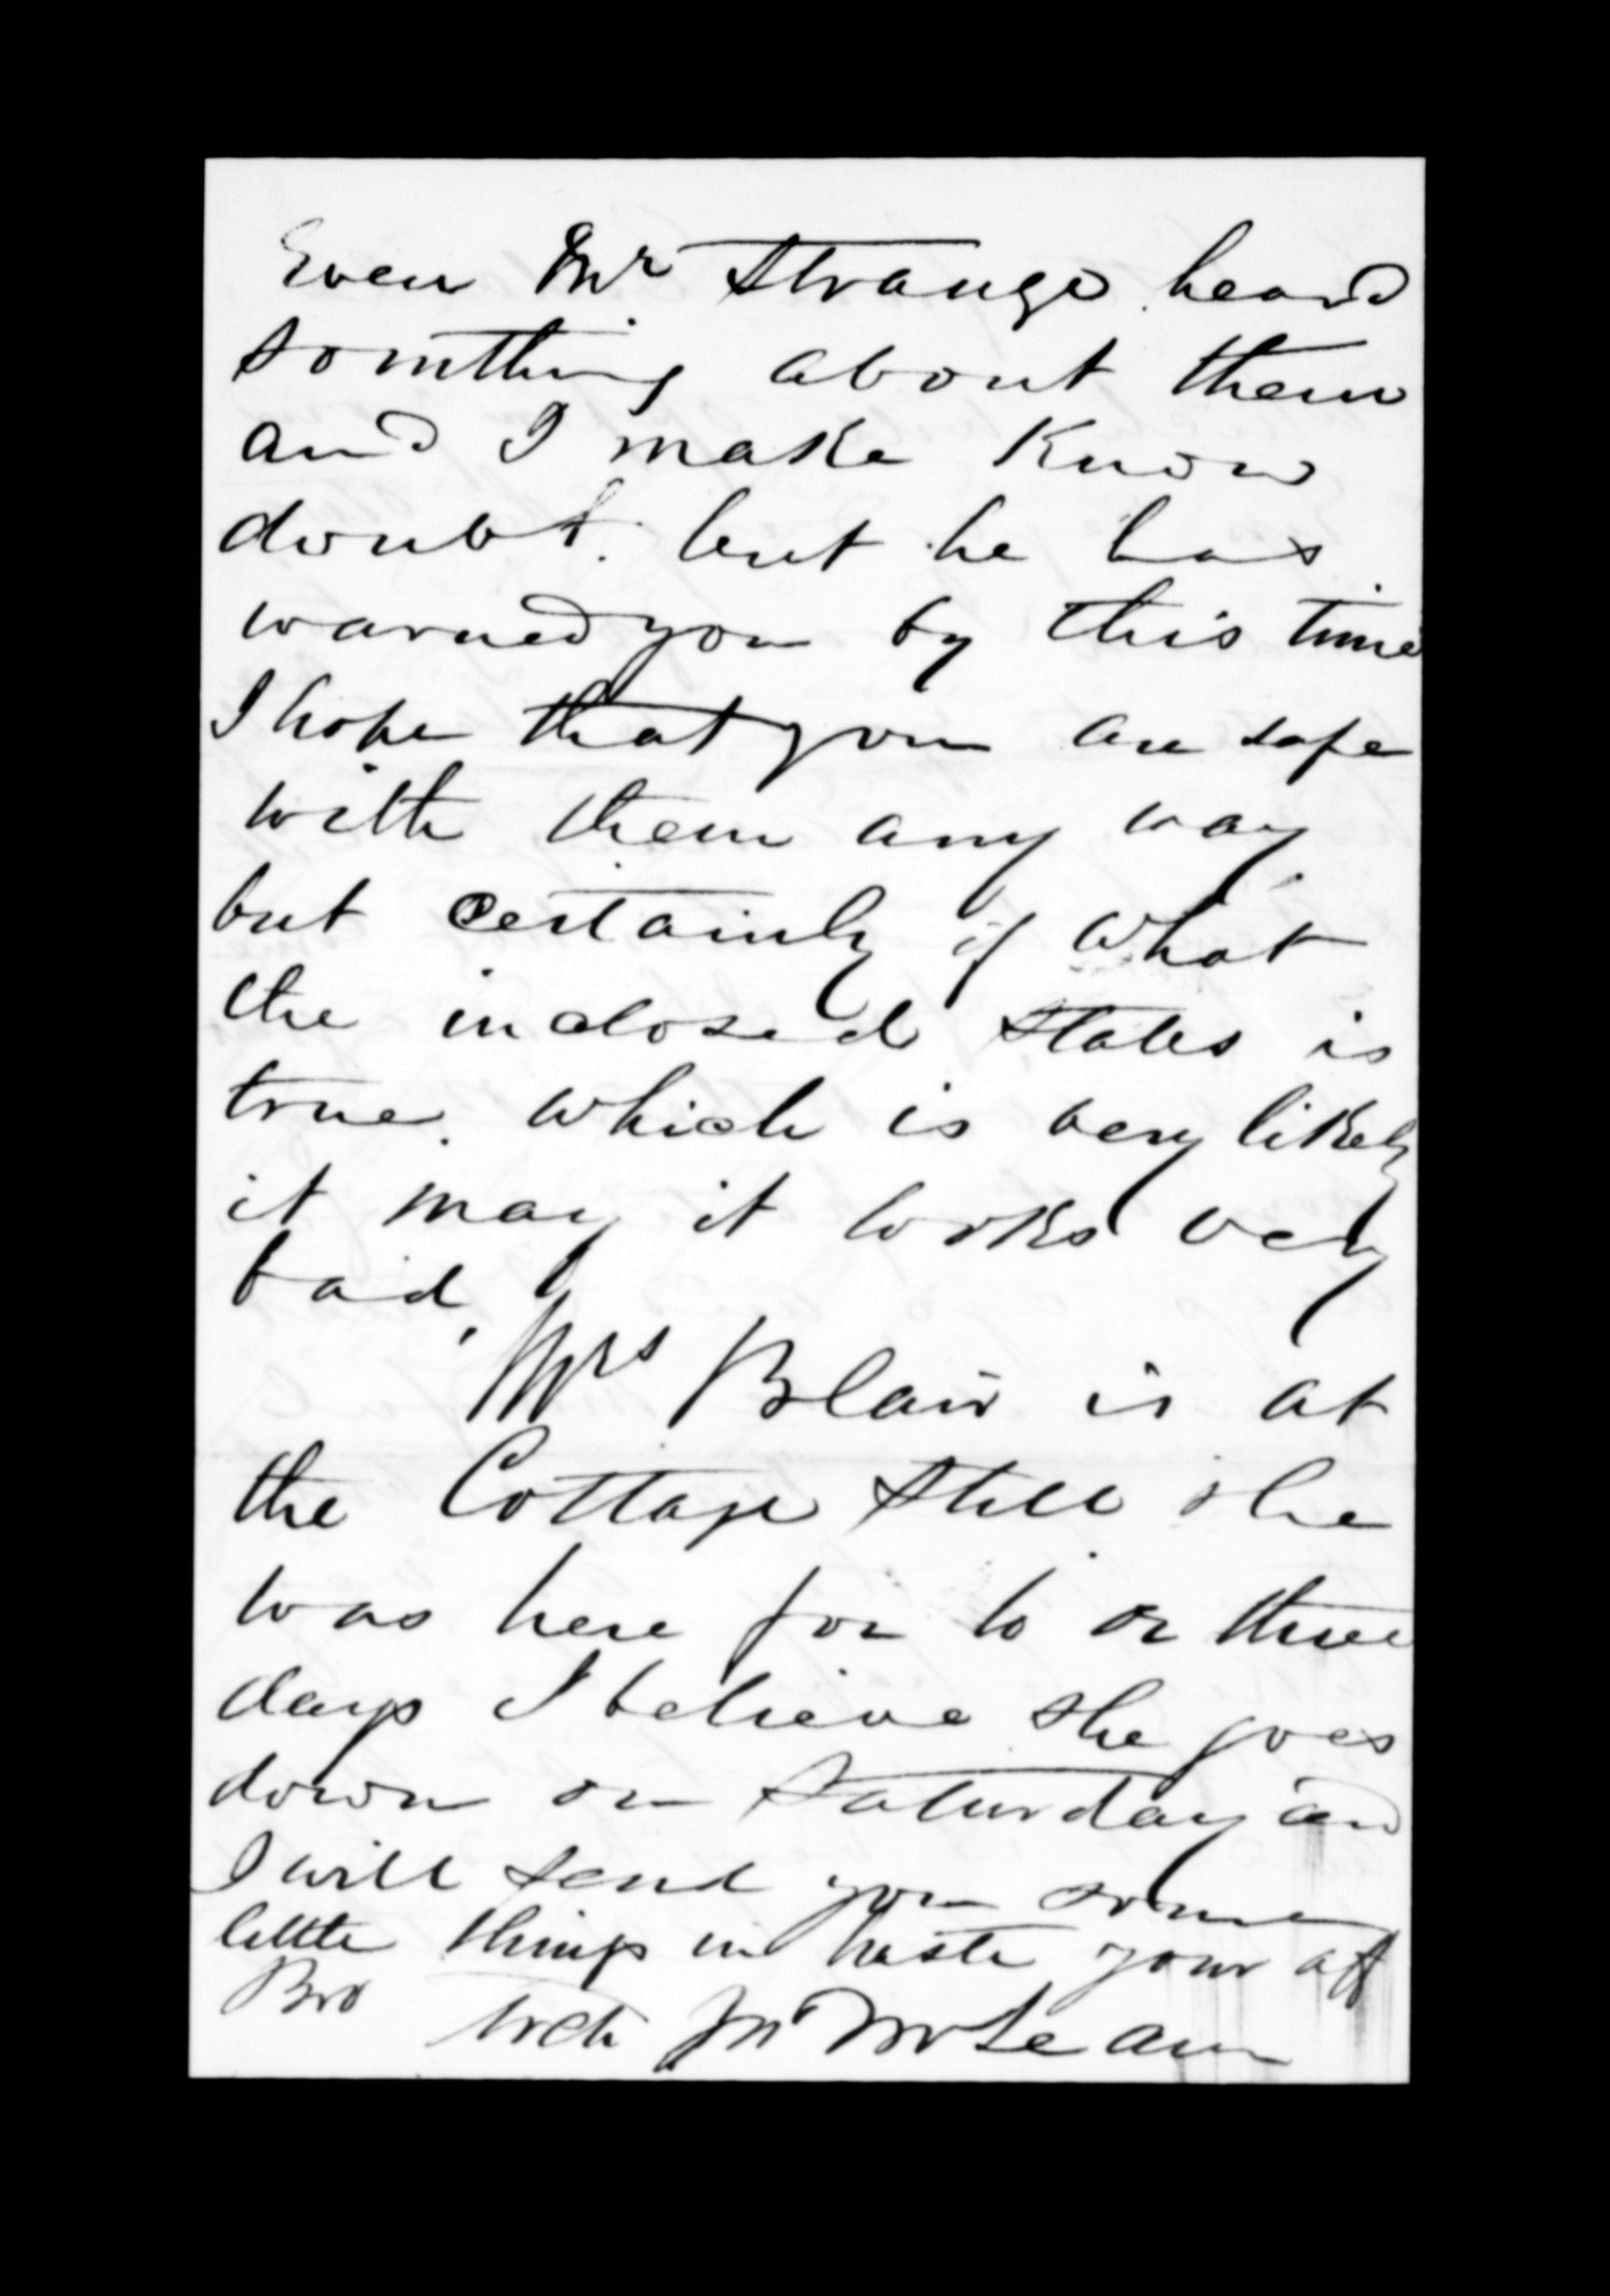 Even Mr Strange heard
somthing about them
and I make Know
doubt. but he has
warned you by this time
I hope that you are safe
with them any way
but certainly if what
the inclosed states is
true. which is very likely
it may it looks very
bad,
Mrs Blair is at
the Cottage still she
was here for to or three
days I believe she goes
down on Saturday and
I will send you some
little things in haste your aff
Bro
Archd Jn McLean